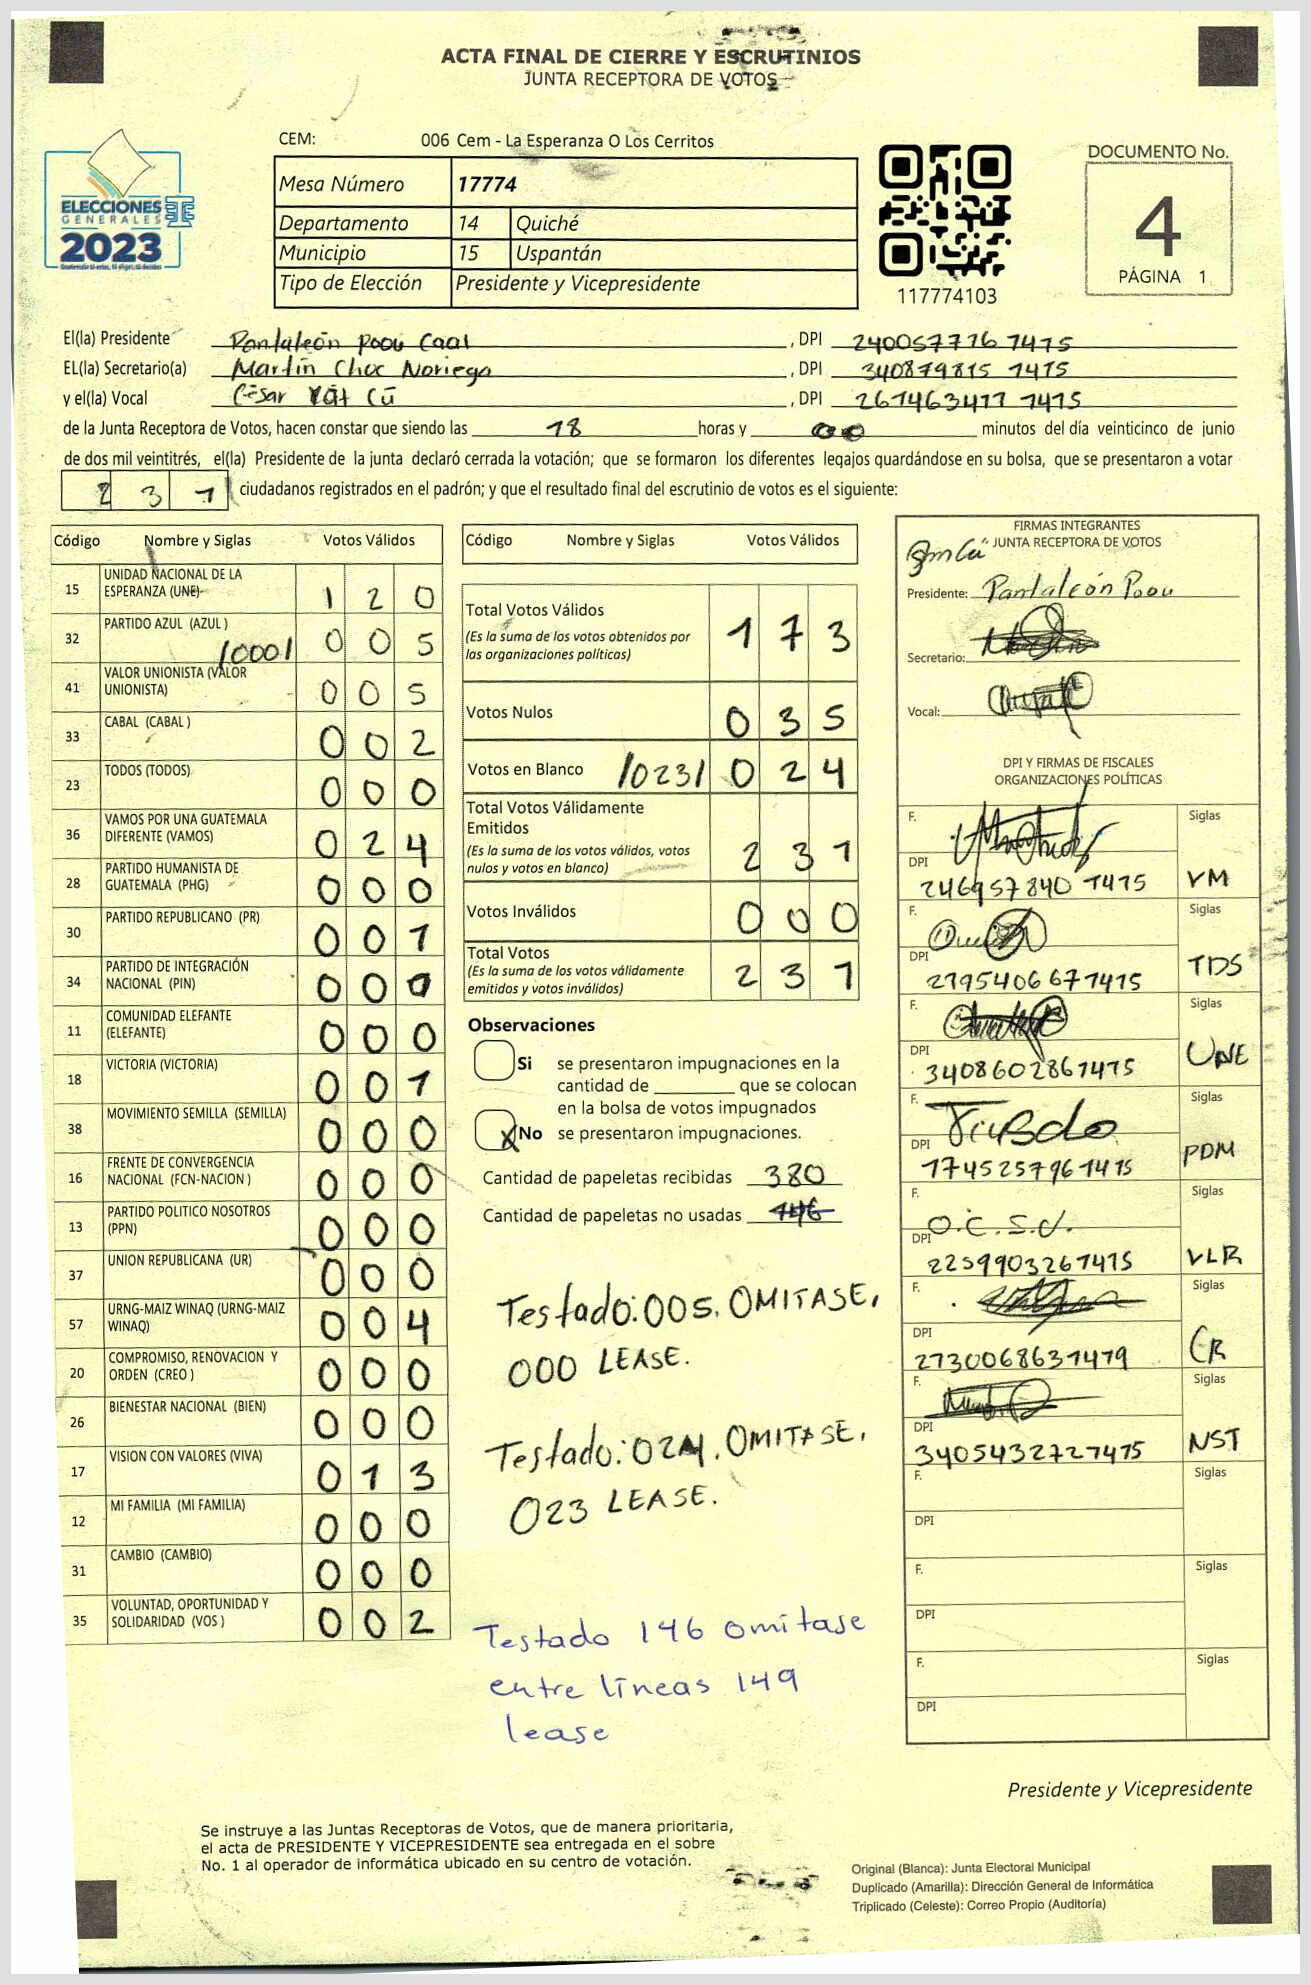 ACTA FINAL DE CIERRE Y ESCRUTINIOS
JUNTA RECEPTORA DE VOTOS
ELECCIONES
GENERALES
2023
CEM: 006 Cem - La Esperanza O Los Cerritos
Mesa Número 17774
Departamento 14 Quiché
Municipio 15 Uspantán
Tipo de Elección Presidente y Vicepresidente
117774103
DOCUMENTO No.
4
PÁGINA 1
El(la) Presidente Pantaleón Poou Caal , DPI 240057776 1415
EL(la) Secretario(a) Martín Choc Noriega , DPI 340879815 1415
y el(la) Vocal César Yat Cú , DPI 261463417 1415
de la Junta Receptora de Votos, hacen constar que siendo las 18 horas y 00 minutos del día veinticinco de junio
de dos mil veintitrés, el(la) Presidente de la junta declaró cerrada la votación; que se formaron los diferentes legajos guardándose en su bolsa, que se presentaron a votar
2 3 1 ciudadanos registrados en el padrón; y que el resultado final del escrutinio de votos es el siguiente:
Código Nombre y Siglas Votos Válidos
15 UNIDAD NACIONAL DE LA ESPERANZA (UNE) 1 2 0
32 PARTIDO AZUL (AZUL ) /000/ 0 0 5
41 VALOR UNIONISTA (VALOR UNIONISTA) 0 0 5
33 CABAL (CABAL ) 0 0 2
23 TODOS (TODOS) 0 0 0
36 VAMOS POR UNA GUATEMALA DIFERENTE (VAMOS) 0 2 4
28 PARTIDO HUMANISTA DE GUATEMALA (PHG) 0 0 0
30 PARTIDO REPUBLICANO (PR) 0 0 1
34 PARTIDO DE INTEGRACIÓN NACIONAL (PIN) 0 0 0
11 COMUNIDAD ELEFANTE (ELEFANTE) 0 0 0
18 VICTORIA (VICTORIA) 0 0 1
38 MOVIMIENTO SEMILLA (SEMILLA) 0 0 0
16 FRENTE DE CONVERGENCIA NACIONAL (FCN-NACION ) 0 0 0
13 PARTIDO POLITICO NOSOTROS (PPN) 0 0 0
37 UNION REPUBLICANA (UR) 0 0 0
57 URNG-MAIZ WINAQ (URNG-MAIZ WINAQ) 0 0 4
20 COMPROMISO, RENOVACION Y ORDEN (CREO ) 0 0 0
26 BIENESTAR NACIONAL (BIEN) 0 0 0
17 VISION CON VALORES (VIVA) 0 1 3
12 MI FAMILIA (MI FAMILIA) 0 0 0
31 CAMBIO (CAMBIO) 0 0 0
35 VOLUNTAD, OPORTUNIDAD Y SOLIDARIDAD (VOS ) 0 0 2
Código Nombre y Siglas Votos Válidos
Total Votos Válidos 1 7 3
(Es la suma de los votos obtenidos por
las organizaciones políticas)
Votos Nulos 0 3 5
Votos en Blanco /023/ 0 2 4
Total Votos Válidamente
Emitidos 2 3 1
(Es la suma de los votos válidos, votos
nulos y votos en blanco)
Votos Inválidos 0 0 0
Total Votos 2 3 1
(Es la suma de los votos válidamente
emitidos y votos inválidos)
Observaciones
Si se presentaron impugnaciones en la
cantidad de ________ que se colocan
en la bolsa de votos impugnados
X No se presentaron impugnaciones.
Cantidad de papeletas recibidas 380
Cantidad de papeletas no usadas 146
Testado: 005. OMITASE,
000 LEASE.
Testado: 024. OMITASE.
023 LEASE.
Testado 146 omitase
entre líneas 149
lease
FIRMAS INTEGRANTES
JUNTA RECEPTORA DE VOTOS
Presidente: Pantaleón Poou
Secretario:
Vocal:
DPI Y FIRMAS DE FISCALES
ORGANIZACIONES POLÍTICAS
F. Siglas
DPI 246957840 1415 VM
F. Siglas
DPI 2795406671415 TDS
F. Siglas
DPI 3408602861415 UNE
F. Siglas
DPI 1745257961415 PDM
F. O.C.S.J. Siglas
DPI 2259903261415 VLR
F. Siglas
DPI 2730068631419 CR
F. Siglas
DPI 3405432721415 NST
F. Siglas
DPI
F. Siglas
DPI
F. Siglas
DPI
Presidente y Vicepresidente
Se instruye a las Juntas Receptoras de Votos, que de manera prioritaria,
el acta de PRESIDENTE Y VICEPRESIDENTE sea entregada en el sobre
No. 1 al operador de informática ubicado en su centro de votación.
Original (Blanca): Junta Electoral Municipal
Duplicado (Amarilla): Dirección General de Informática
Triplicado (Celeste): Correo Propio (Auditoría)